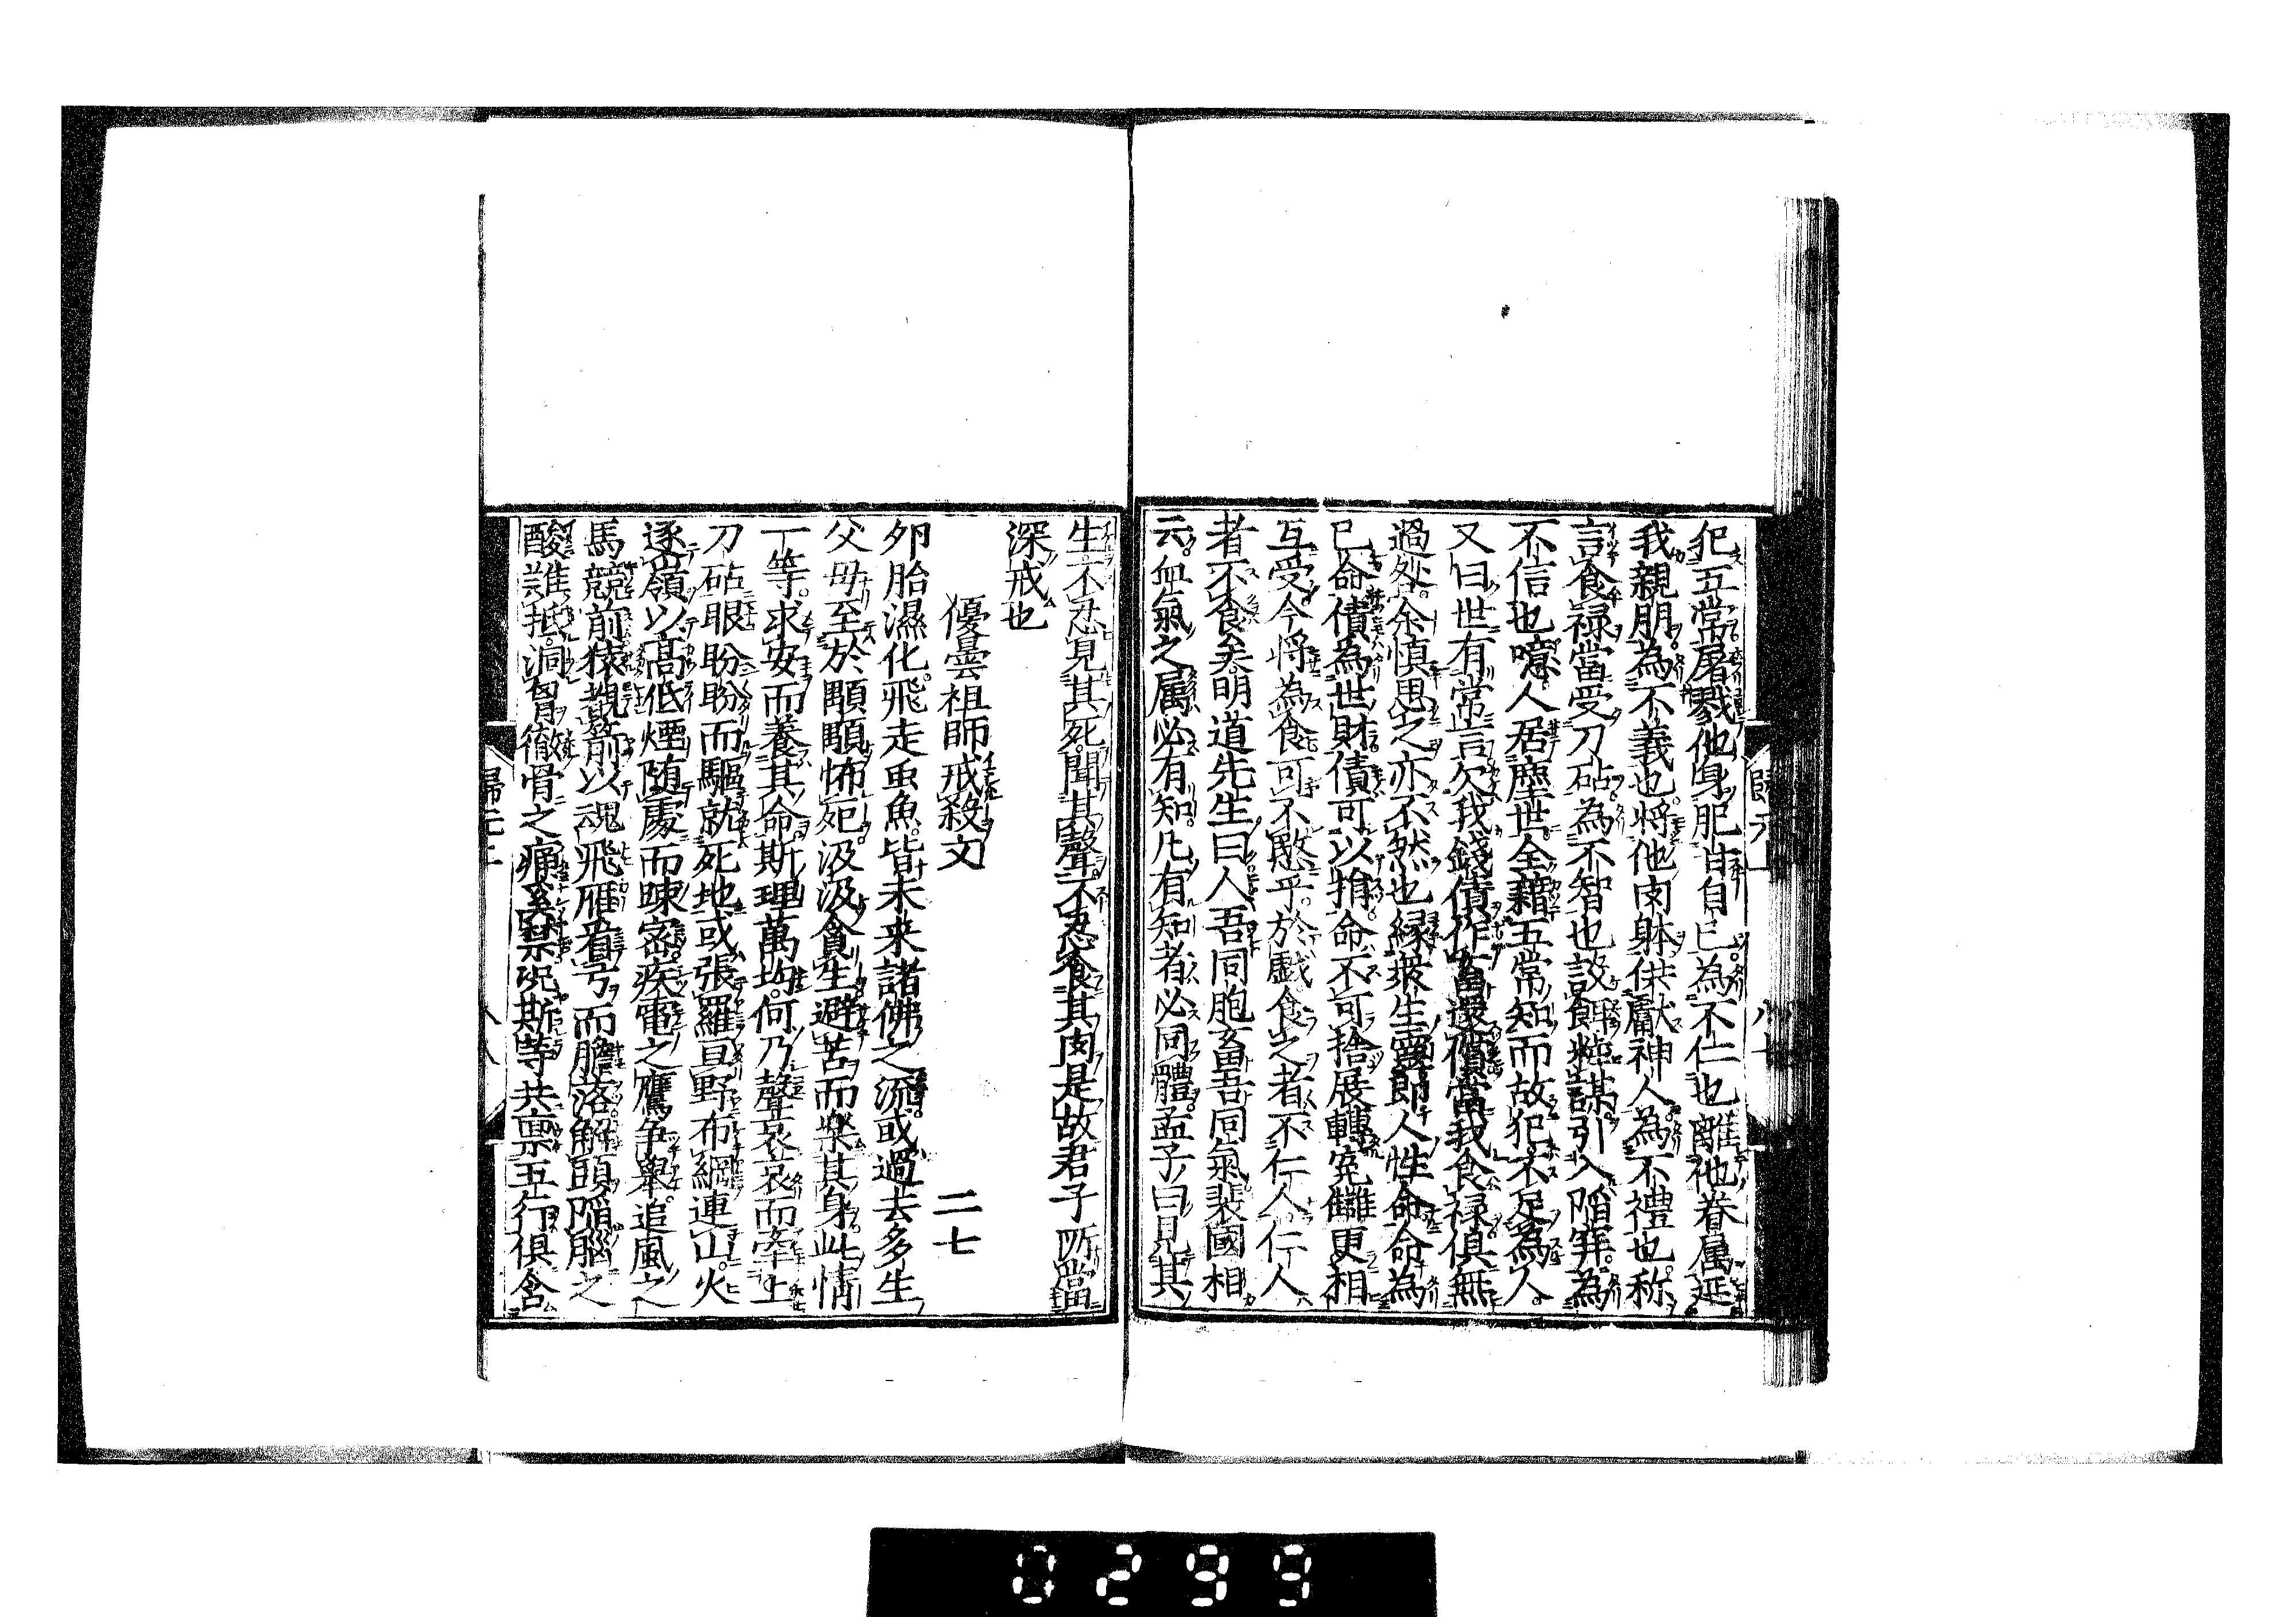 犯五常屠戮他身肥甘自已為不仁也離他眷属延
我親朋為不義也将他肉躰供獻神人為不禮也称
言食禄當受刀砧為不智也設餌粧謀引入陥穽為
不信也噫人居塵世全藉五常知而故犯不足為人
又曰世有常言欠我錢債作畜還償當我食禄俱無
過咎余慎思之亦不然也縁衆生靈即人性命命為
已命債為世財債可以捐命不可捨展轉寃讎更相
互受今将為食可不愍乎於戯食之者不仁人仁人
者不食矣明道先生曰人吾同胞畜吾同氣裴國相
云血氣之属必有知凡有知者必同體孟子曰見其
生不忍見其死聞其聲不忍食其肉是故君子所當
深戒也
優曇祖師戒殺文 二七
夘胎濕化飛走虫魚皆未来諸佛之流或過去多生
父母至於顒顒怖死汲汲貪生避苦而樂其身此情
一等求安而養其命斯理萬均何乃聲哀哀而牽上
刀砧眼盼盼而驅就死地或張羅亘野布網連山火
逐嶺以高低煙随處而踈密疾電之鷹争舉追風之
馬競前猿覩箭以魂飛雁看弓而膽落解頭陥腦之
酸誰抵洞胷徹骨之痛奚禁况斯等共禀五行俱含
歸元上
八七
歸元上
八八
0299